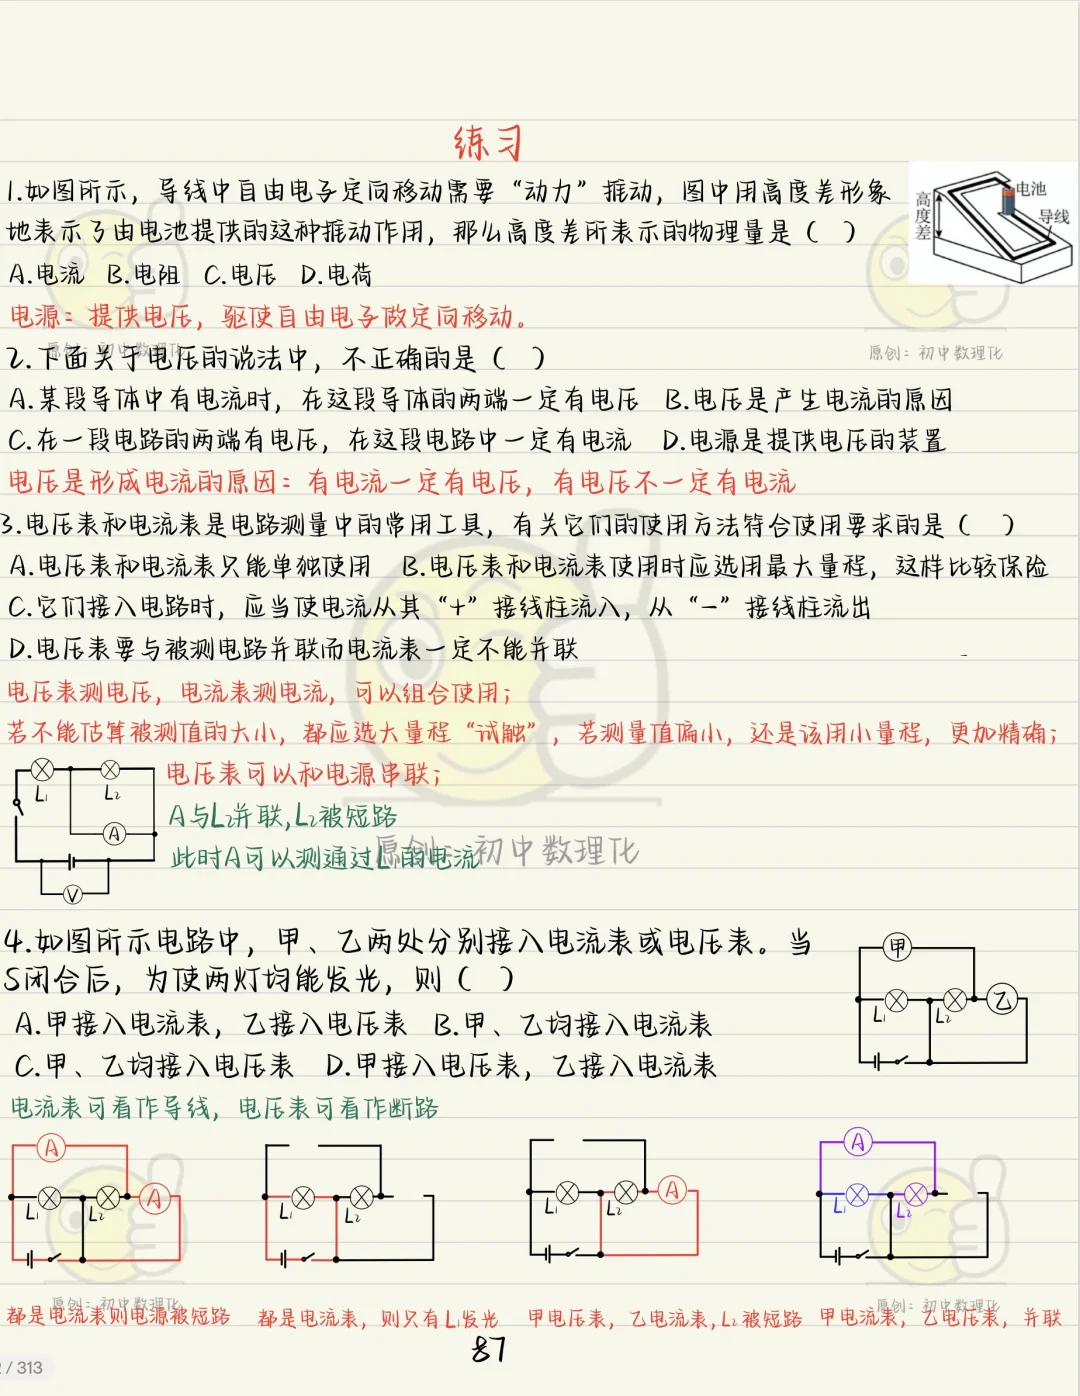 练习
1.如图所示，导线中自由电子定向移动需要“动力”推动，图中用高度差形象
地表示了由电池提供的这种推动作用，那么高度差所表示的物理量是（ ）
高度差
电池
导线
A.电流 B.电阻 C.电压 D.电荷
电源：提供电压，驱使自由电子做定向移动。
原创：初中数理化
原创：初中数理化
2.下面关于电压的说法中，不正确的是（ ）
A.某段导体中有电流时，在这段导体的两端一定有电压 B.电压是产生电流的原因
C.在一段电路的两端有电压，在这段电路中一定有电流 D.电源是提供电压的装置
电压是形成电流的原因：有电流一定有电压，有电压不一定有电流
3.电压表和电流表是电路测量中的常用工具，有关它们的使用方法符合使用要求的是（ ）
A.电压表和电流表只能单独使用 B.电压表和电流表使用时应选用最大量程，这样比较保险
C.它们接入电路时，应当使电流从其“+”接线柱流入，从“-”接线柱流出
D.电压表要与被测电路并联而电流表一定不能并联
电压表测电压，电流表测电流，可以组合使用；
若不能估算被测值的大小，都应选大量程“试触”，若测量值偏小，还是该用小量程，更加精确；
电压表可以和电源串联；
L₁ L₂
A
V
A与L₂并联,L₂被短路
此时A可以测通过L₁的电流
原创：初中数理化
4.如图所示电路中，甲、乙两处分别接入电流表或电压表。当
S闭合后，为使两灯均能发光，则（ ）
甲
L₁ L₂ 乙
A.甲接入电流表，乙接入电压表 B.甲、乙均接入电流表
C.甲、乙均接入电压表 D.甲接入电压表，乙接入电流表
电流表可看作导线，电压表可看作断路
A
L₁ L₂ A
L₁ L₂
L₁ L₂ A
A
L₁ L₂
原创：初中数理化
原创：初中数理化
都是电流表则电源被短路
都是电流表，则只有L₁发光
甲电压表，乙电流表,L₂被短路
甲电流表，乙电压表，并联
87
2 / 313